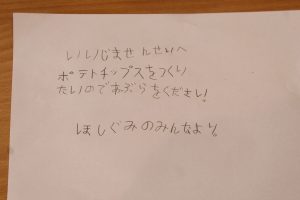 いいじませんせいへ
ポテトチップスをつくり
たいのであぶらをください!
ほしぐみのみんなより。